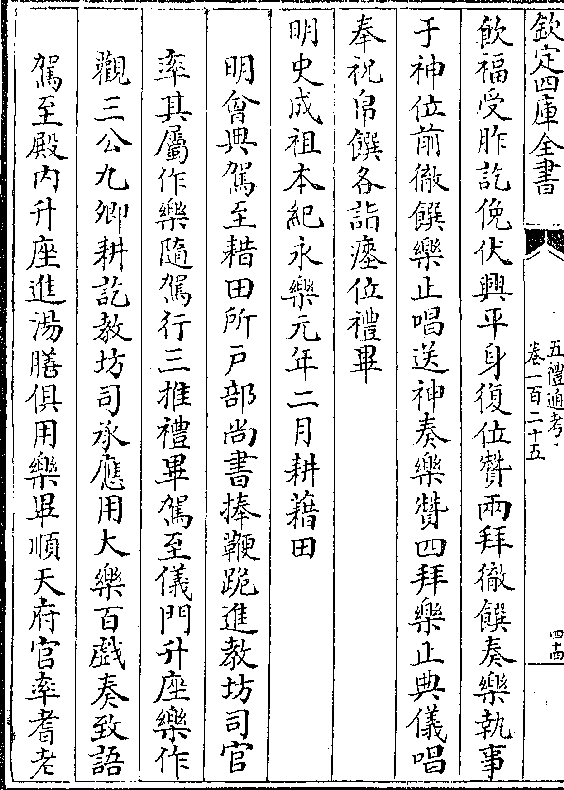 欽定四庫全書
五禮通考
卷一百二十五
四十四
飲福受胙訖俛伏興平身復位贊兩拜徹饌奏樂執事
于神位前徹饌樂止唱送神奏樂贊四拜樂止典儀唱
奉祝帛饌各詣瘞位禮畢
明史成祖本紀永樂元年二月耕藉田
明會典駕至耤田所戸部尚書捧鞭跪進教坊司官
率其屬作樂隨駕行三推禮畢駕至儀門升座樂作
觀三公九卿耕訖教坊司承應用大樂百戲奏致語
駕至殿内升座進湯膳俱用樂畢順天府官率耆老